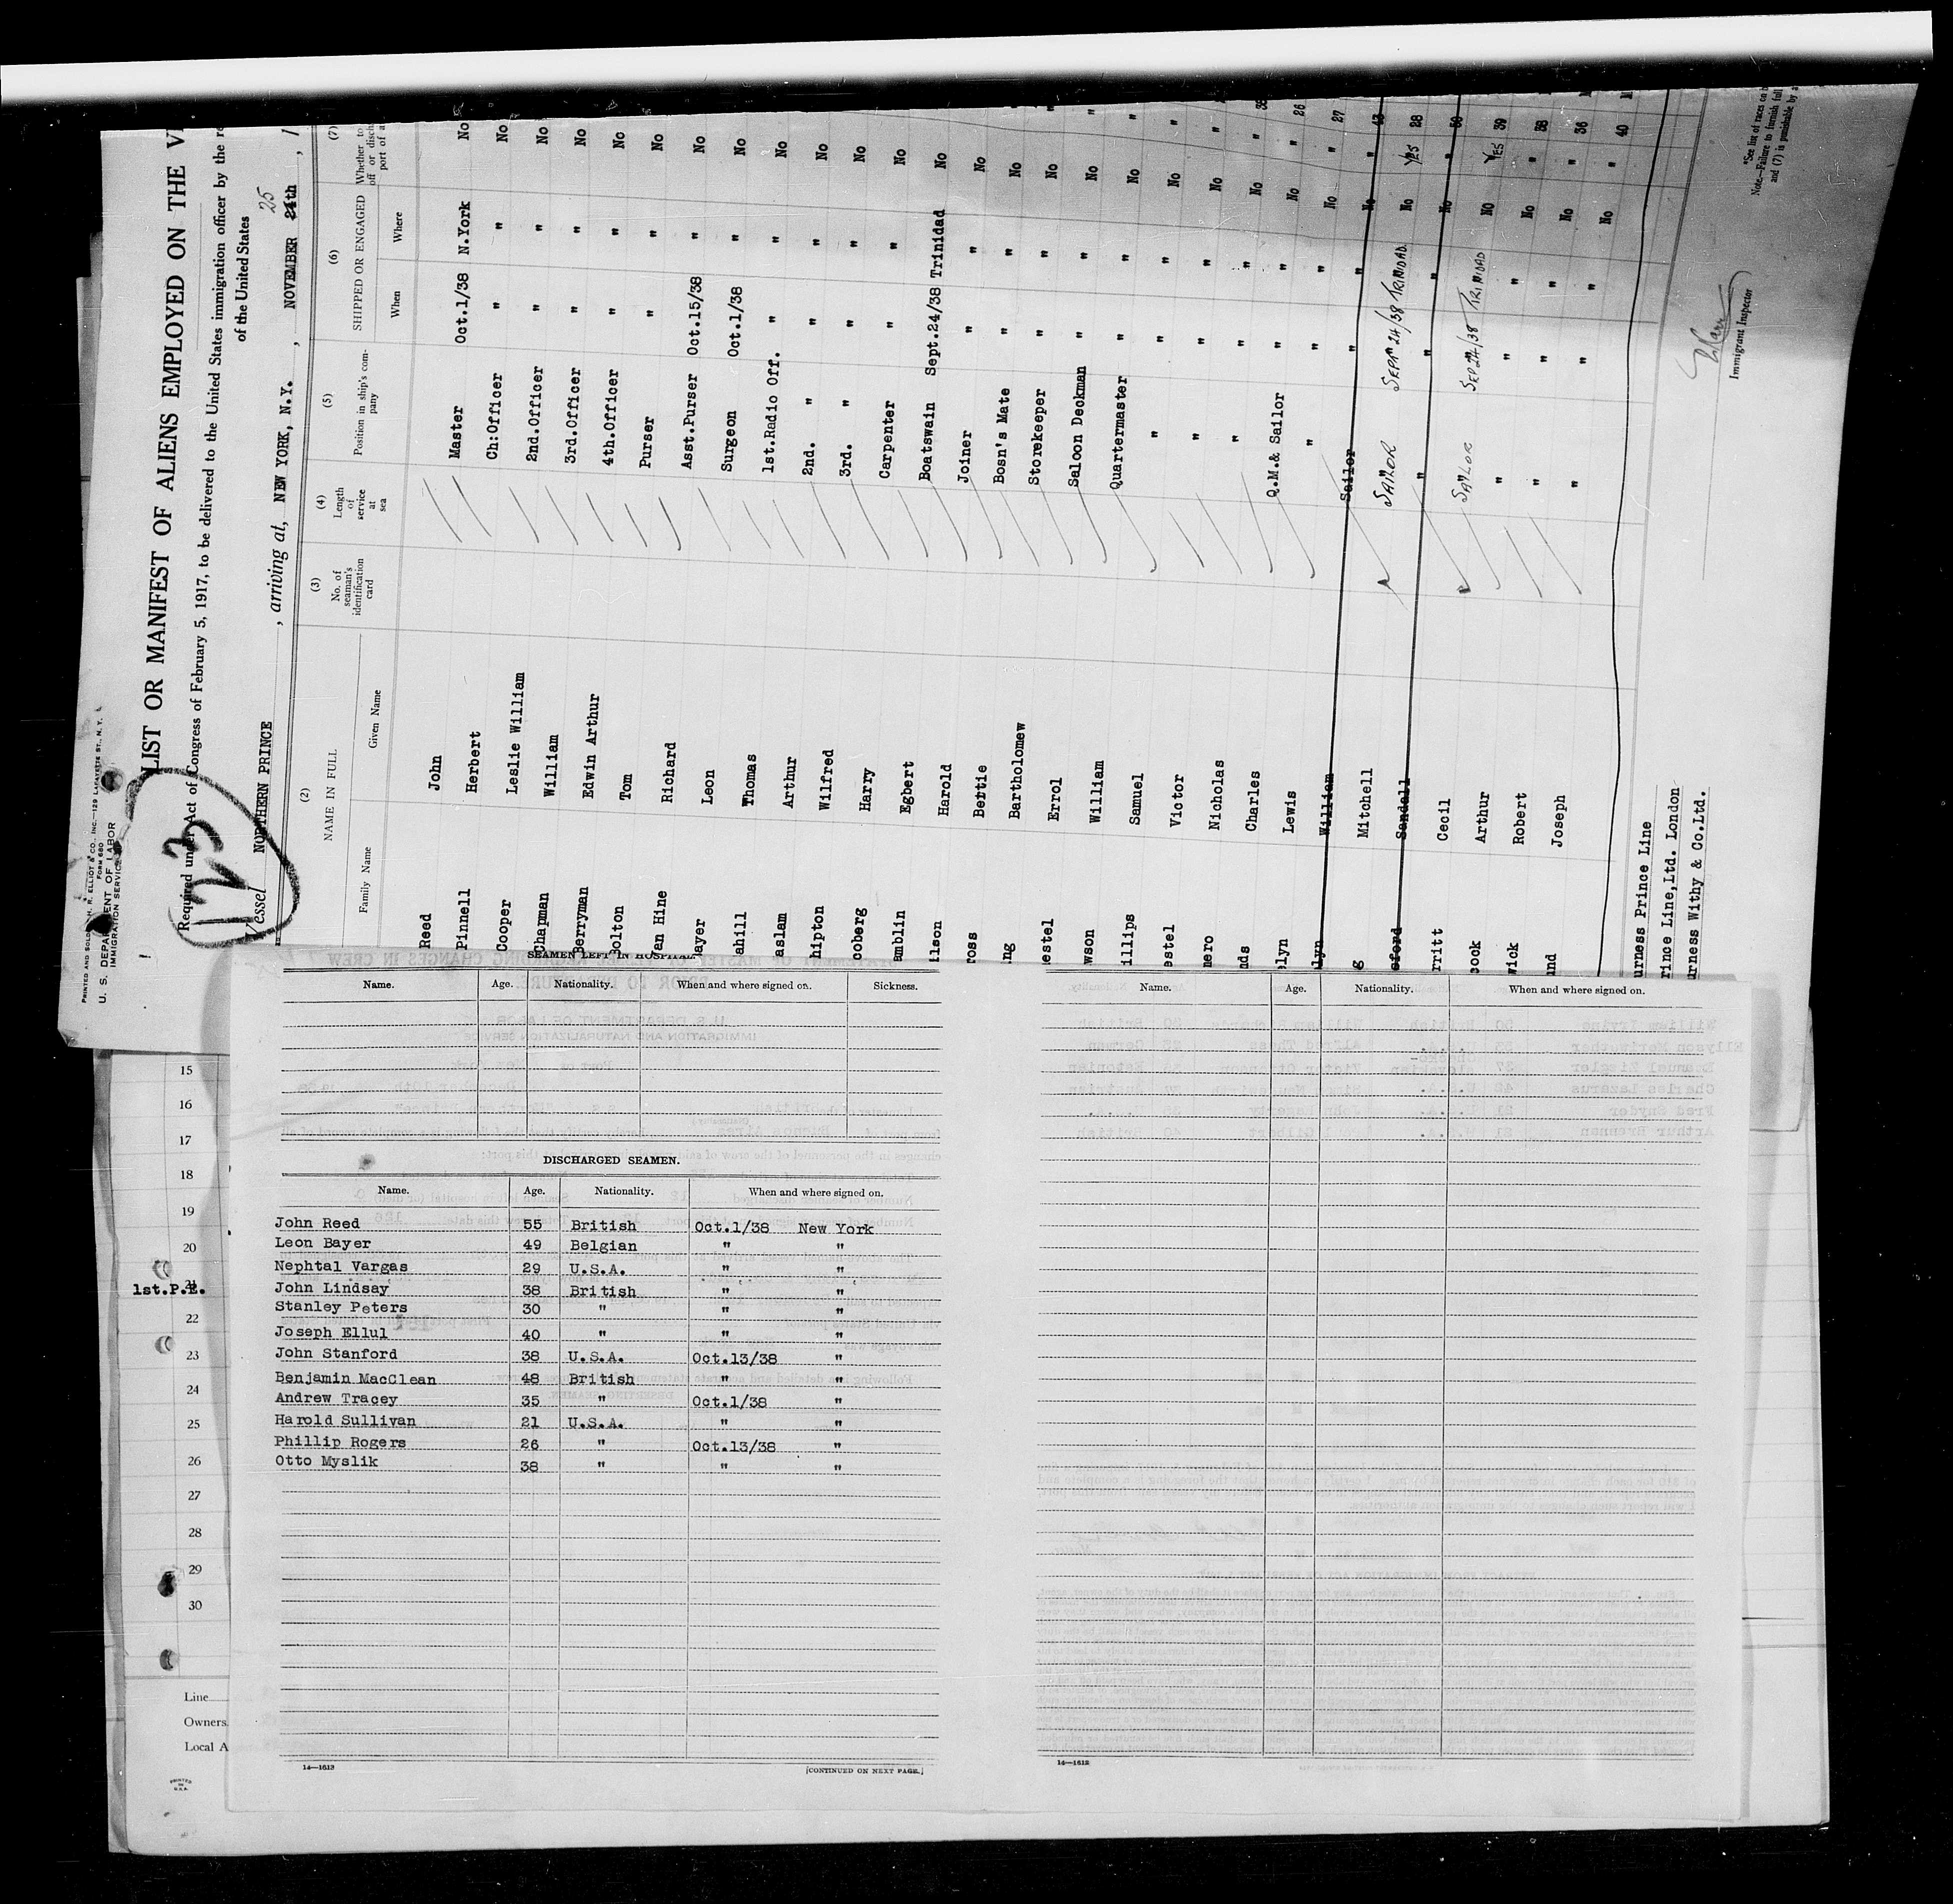 PRINTED AND SOLD BY H. R. ELLIOT & CO., INC.—129 LAFAYETTE ST., N. Y.
FORM 680
U. S. DEPARTMENT OF LABOR
IMMIGRATION SERVICE
LIST OR MANIFEST OF ALIENS EMPLOYED ON THE
Required under Act of Congress of February 5, 1917, to be delivered to the United States immigration officer by the
of the United States
1123
Vessel NORTHERN PRINCE , arriving at, NEW YORK, N.Y. , NOVEMBER 24th 25 , 1
(2) (3) (4) (5) (6) (7)
NAME IN FULL No. of seaman's identification card Length of service at sea Position in ship's company SHIPPED OR ENGAGED Whether to
Family Name Given Name When Where
Reed John Master Oct.1/38 N.York No
Pinnell Herbert Ch:Officer " " No
Cooper Leslie William 2nd.Officer " " No
Chapman William 3rd.Officer " " No
Berryman Edwin Arthur 4th.Officer " " No
olton Tom Purser " " No
an Hine Richard Asst.Purser Oct.15/38 " No
ayer Leon Surgeon Oct.1/38 " No
ahill Thomas 1st.Radio Off. " " No
aslam Arthur 2nd. " " " No
hipton Wilfred 3rd. " " " No
coberg Harry Carpenter " " No
amblin Egbert Boatswain Sept.24/38 Trinidad No
ilson Harold Joiner " " No
ross Bertie Bosn's Mate " " No
ng Bartholomew Storekeeper " " No
estel Errol Saloon Deckman " " No
wson William Quartermaster " " No
illips Samuel " " " No
estel Victor " " " No
mero Nicholas " " " No
nds Charles Q.M.& Sailor " " No
elyn Lewis " " " No
lyn William Sailor " " No
g Mitchell SAILOR SEPT 24/38 TRINIDAD No YES 28
sford Sandall " " " No
rritt Cecil SAILOR SEP 24/38 TRINIDAD No YES 39
cock Arthur " " " No " 38
wick Robert " " " No " 36
und Joseph " " " No " 40
urness Prince Line
rince Line,Ltd. London
urness Withy & Co.Ltd.
Immigrant Inspector
*See list of races on
Note.—Failure to furnish full
and (7) is punishable by a
SEAMEN LEFT IN HOSPITAL
Name. Age. Nationality. When and where signed on. Sickness.
DISCHARGED SEAMEN.
Name. Age. Nationality. When and where signed on.
John Reed 55 British Oct.1/38 New York
Leon Bayer 49 Belgian " "
Nephtal Vargas 29 U.S.A. " "
John Lindsay 38 British " "
Stanley Peters 30 " " "
Joseph Ellul 40 " " "
John Stanford 38 U.S.A. Oct.13/38 "
Benjamin MacClean 48 British " "
Andrew Tracey 35 " Oct.1/38 "
Harold Sullivan 21 U.S.A. " "
Phillip Rogers 26 " Oct.13/38 "
Otto Myslik 38 " " "
14—1613 [CONTINUED ON NEXT PAGE.]
Name. Age. Nationality. When and where signed on.
14—1613
15
16
17
18
19
20
1st.P.E. 21
22
23
24
25
26
27
28
29
30
Line
Owners
Local A
PRINTED
IN
U.S.A.